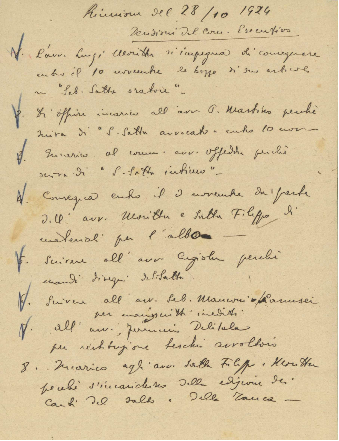 Riunione del 28/10 1924
Decisioni del Com. Esecutivo
1. L'avv. Luigi Morittu s'impegna di consegnare
entro il 10 novembre la bozza di suo articolo
su "Seb. Satta oratore"
2. Di offrire incarico all'avv. P. Mastino perché
scriva di "S. Satta avvocato" entro 10 nov —
3. Incarico al comm. avv. Offeddu perché
scriva di "S. Satta intimo"
4. Consegna entro il 3 novembre da parte
dell'avv. Morittu e Satta Filippo di
materiali per l'albo —
5. Scrivere all'avv. perché
mandi disegni di Satta
6. Scrivere all'avv. Seb.
per manoscritti inediti
7. all'avv. Delitala
per restituzione
8. Incarico agli avv. Satta Filippo e Morittu
perché s'incarichino della edizione dei
Canti del salto e della tanca —